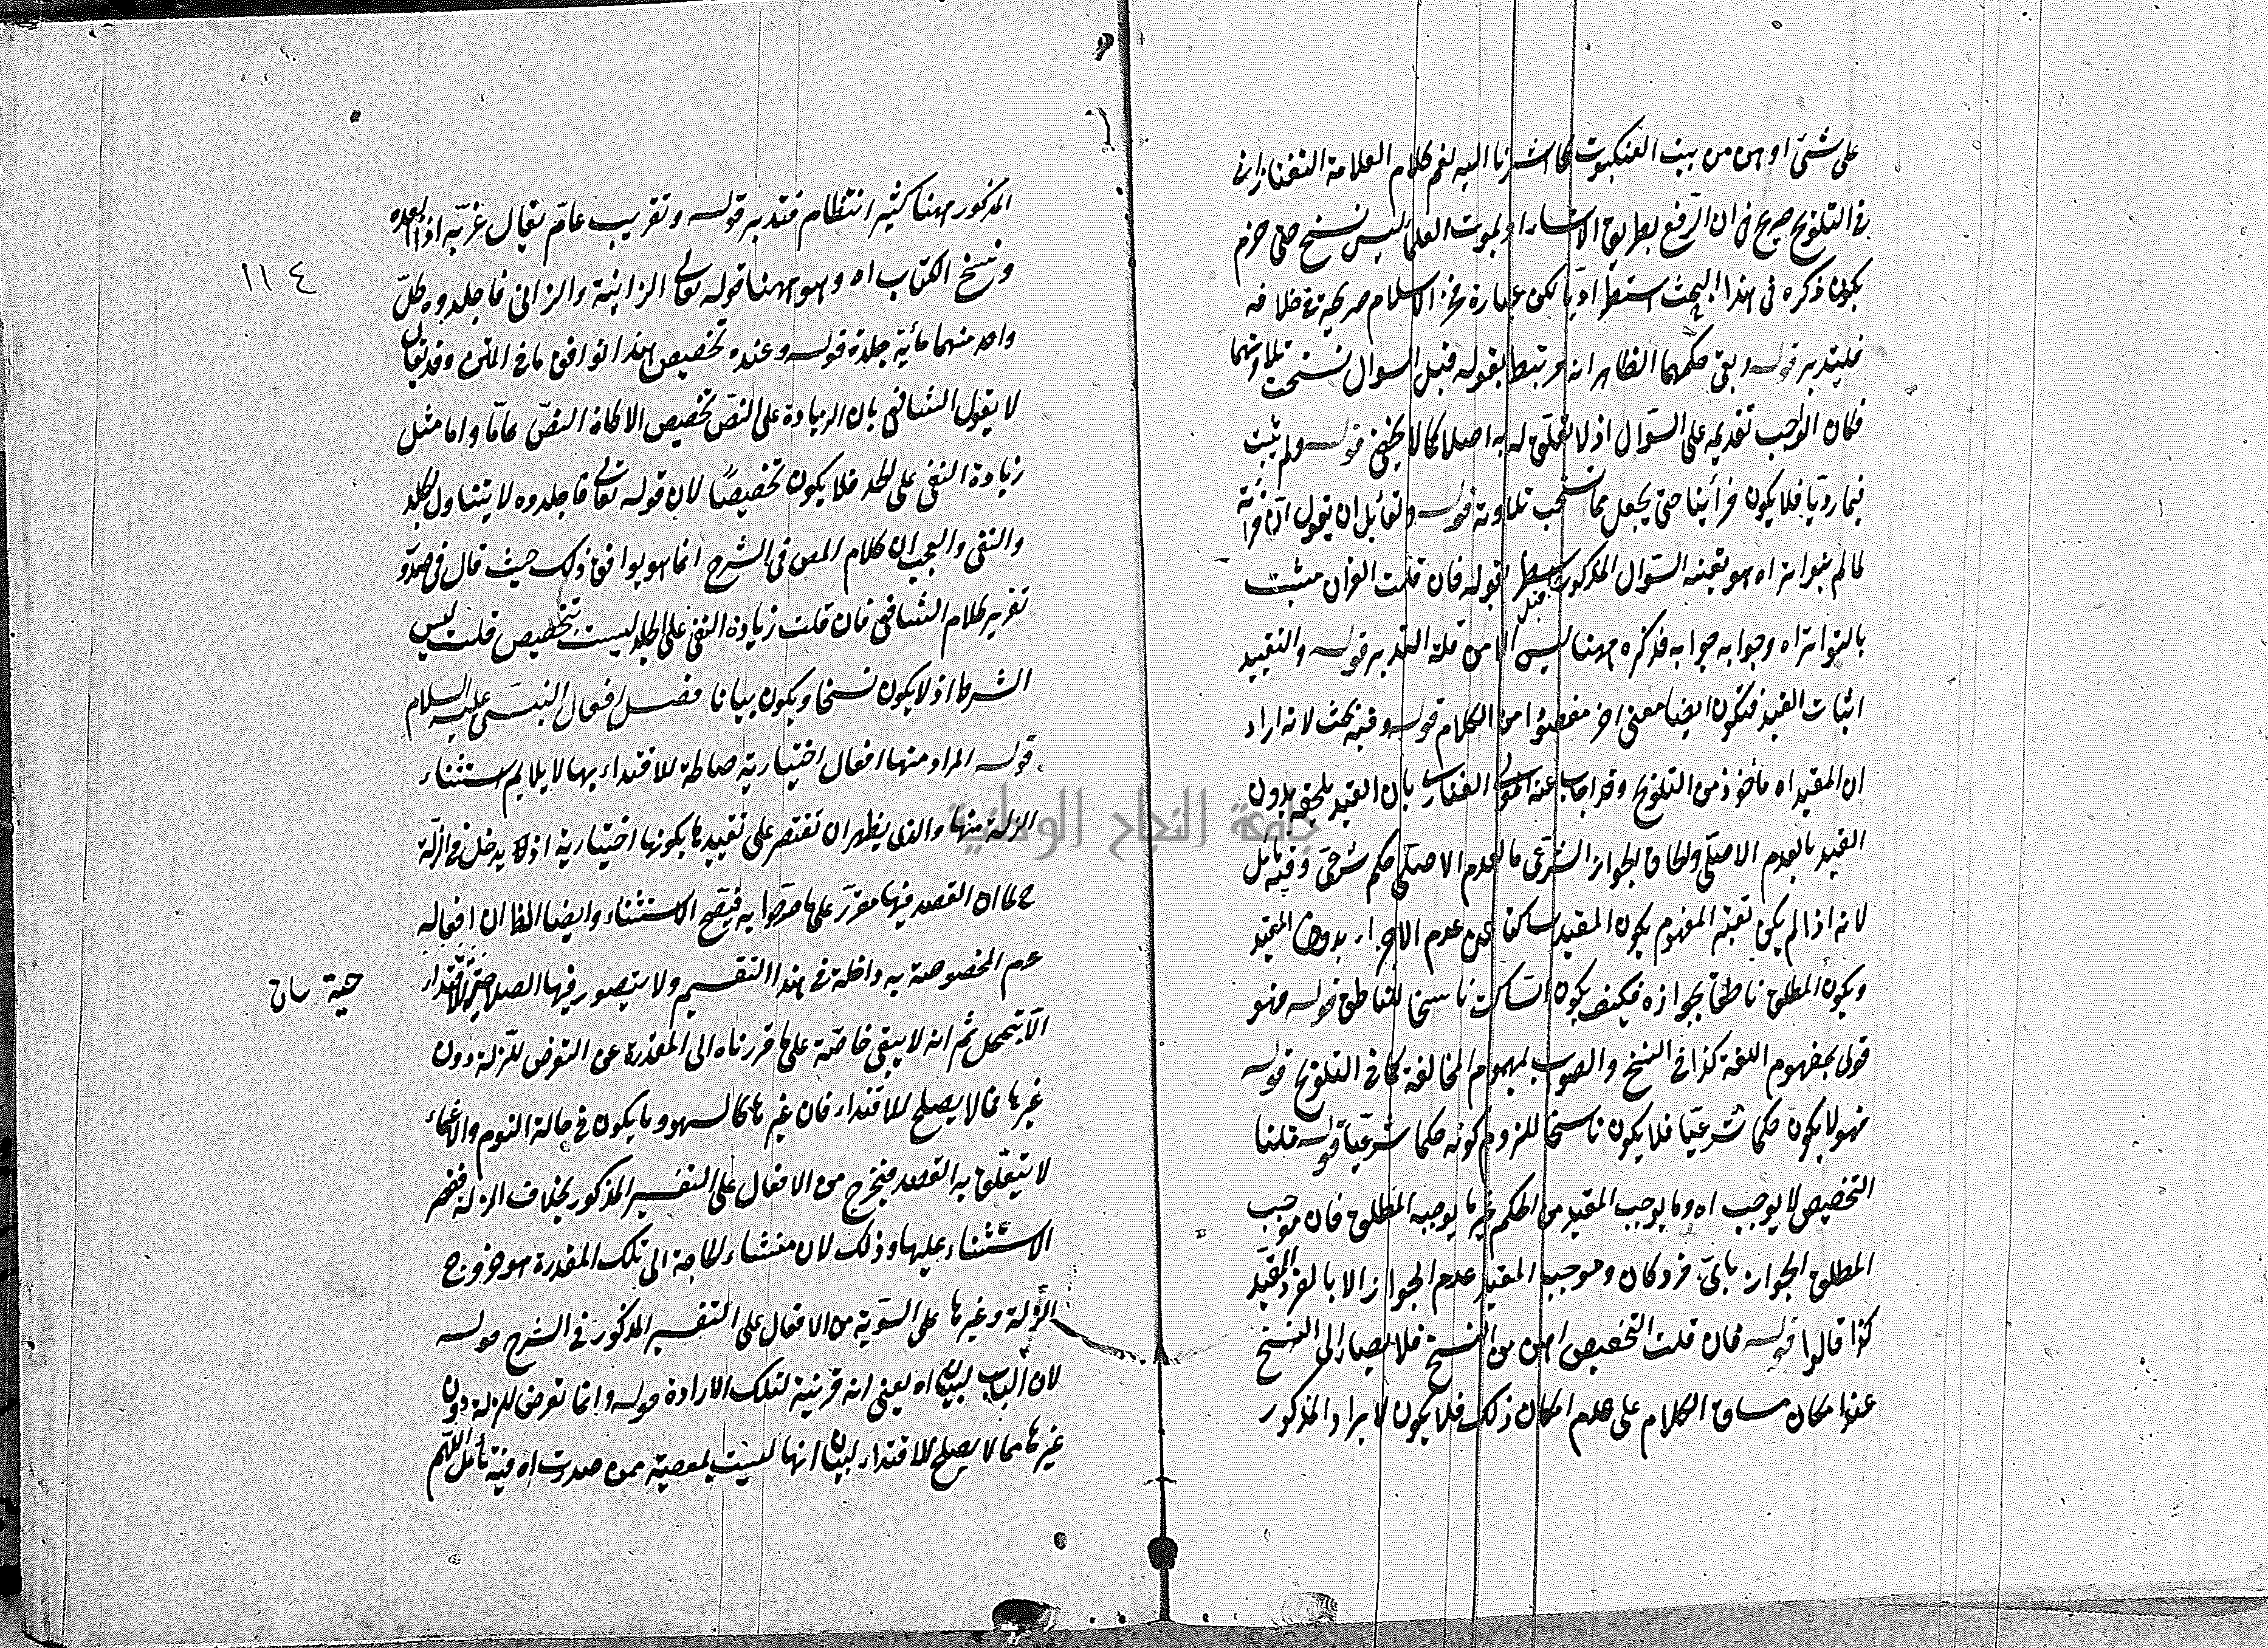 على شئ اوهن من بيت العنكبوت كما اشرنا اليه نعم كلام العلامة التفتازانى
فى التلويح صريح فى ان الرفع بطريق الانساء او بموت العلماء ليس نسخ حتى
يكون ذكره فى هذا البحث استطراديا لكن عبارة فخر الاسلام صريحة فى خلافه
فليتدبر قوله وبقى حكمهما الظاهر انه مرتبط بقوله قبل السوال نسخت تلاوتهما
فكان الواجب تقديمه على السؤال اذ لا تعلق له به اصلا كما لا يخفى قوله ولم يثبت
فيما رويا فلا يكون قرأنا حتى يجعل مما نسخت تلاوته قوله ولقائل ان يقول ان قرأة
لما لم يتواتر اه هو بعينه السؤال المذكور قبل بقوله فان قلت القران مثبت
بالتواتر اه وجوابه جوابه فذكره ههنا ليس الا من قلة التدبر قوله والتقييد
اثبات القيد فتكون ايضا معنى اخر مقصودا من الكلام قوله وفيه بحث لانه اراد
ان المقيد اه ماخوذ من التلويح وقد اجاب عنه المولى الفنارى بان القيد يلحقه بدون
القيد بالعدم الاصلى والحاق الجواز الشرعى بالعدم الاصلى حكم شرعى وفيه تأمل
لانه اذا لم يكن تعينه المفهوم يكون المقيد ساكتا عن عدم الاجزاء بدون القيد
ويكون المطلق ناطقا بجوازه فكيف يكون الساكت ناسخا للناطق قوله فهو
قول بمفهوم اللغة كذا فى النسخ والصواب بمفهوم المخالفة كما فى التلويح قوله
فهو لا يكون حكما شرعيا فلا يكون ناسخا للزوم كونه حكما شرعيا قوله قلنا
التخصيص لا يوجب اه وما يوجب المقيد من الحكم غير ما يوجبه المطلق فان موجب
المطلق الجواز باى فرد كان وموجب المقيد عدم الجواز الا بالفرد المقيد
كذا قالوا قوله فان قلت التخصيص اهون من النسخ فلا يصار الى النسخ
عند امكان مساق الكلام على عدم امكان ذلك فلا يكون لايراد المذكور
المذكور ههنا كثير انتظام فتدبر قوله وتغريب عام يقال غربه اذا ابعده
ونسخ الكتاب اه وهو ههنا قوله تعالى الزانية والزانى فاجلدوا كل
١١٤
واحد منهما مائة جلدة قوله وعنده تخصيص هذا لوافق ما فى المتن وقد يقال
لا يقول الشافعى بان الزيادة على النص تخصيص الا كان النص عاما واما مثل
زيادة النفى على الحد فلا يكون تخصيصا لان قوله تعالى فاجلدوه لا يتناول الجلد
والنفى والعجب ان كلام المص فى الشرح انما هو يوافق ذلك حيث قال فى صدد
تقرير كلام الشافعى فان قلت زيادة النفى على الجلد ليست بتخصيص قلت ليس
الشرط اذ لا يكون نسخا ويكون بيانا فصل افعال النبى عليه السلام
قوله المراد منها افعال اختيارية صالحة للاقتداء بها لا يلايم استثناء
الزلة منها والذى يظهر ان تقتصر على تقييدها بكونها اختيارية اذ لا يدخل فى الزلة
ح لما ان القصد فيها مقرر على ما صرحوا به فيصح الاستثناء وايضا الظ ان افعاله
عم المخصوصة به داخلة فى هذا التقسيم ولا يتصور فيها الصلاحية للاقتداء
الا بتمحل ثم انه لا يبقى خاصة على ما قررناه الى المعذرة عن التعرض للزلة دون
غيرها مما لا يصلح للاقتداء فان غيرها كالسهو وما يكون فى حالة النوم والاغماء
لا يتعلق به القصد فيخرج من الافعال على التفسير المذكور بخلاف الزلة فقصر
الاستثناء عليها وذلك لان منشاء الحاجة الى تلك المعذرة هو خروج
الزلة وغيرها على السوية من الافعال على التفسير المذكور فى الشرح قوله
لان الباب لبيان اه يعنى انه قرينة لتلك الارادة قوله وانما تعرض للزلة دون
غيرها مما لا يصلح للاقتداء لبيان انها ليست بمعصية ممن صدرت اه فيه تأمل اللهم
جامعة النجاح الوطنية